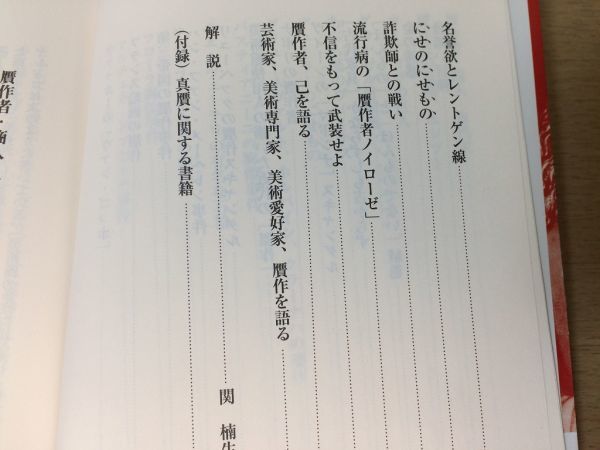 名誉欲とレントゲン線
にせのにせもの
詐欺師との戦い
流行病の「贋作者ノイローゼ」
不信をもって武装せよ
贋作者、己を語る
芸術家、美術専門家、美術愛好家、贋作を語る
解 説 関 楠生
(付録) 真贋に関する書籍
贋作者・商人